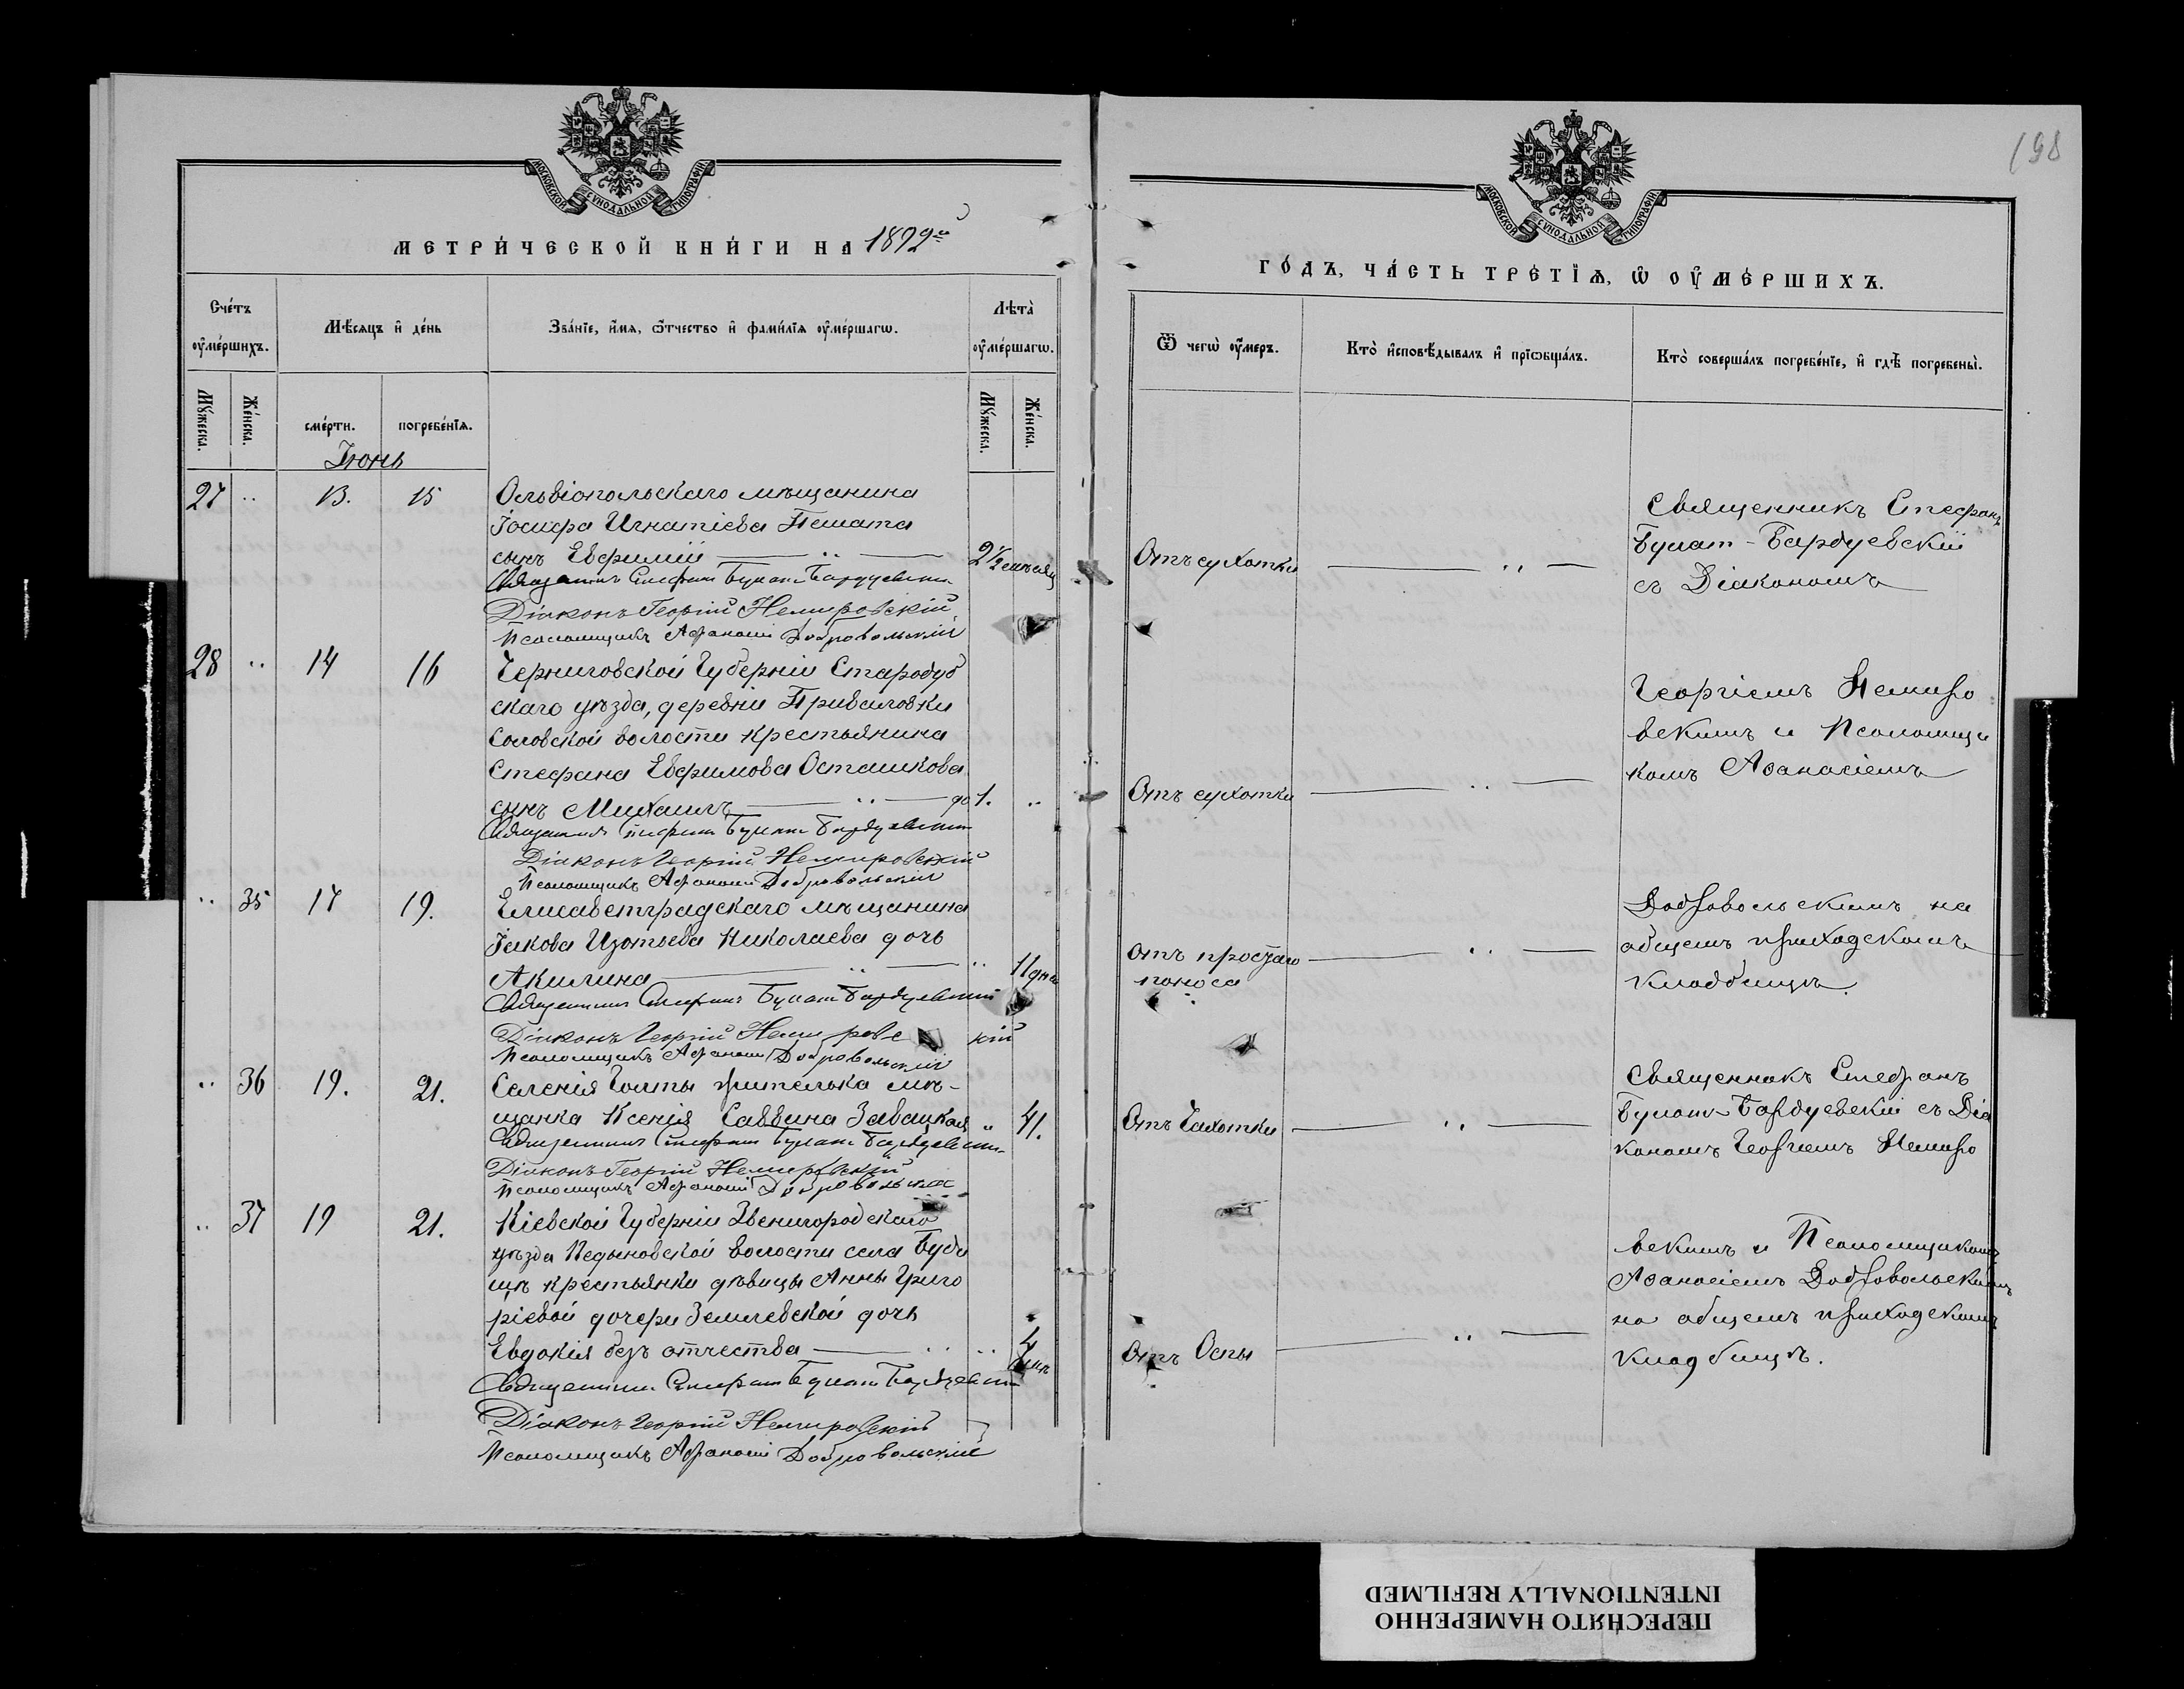 МОСКОВСКОЙ СѴНОДАЛЬНОЙ ТИПОГРАФІИ
МЕТРИ́ЧЕСКОЙ КНИ́ГИ НА 1892й
Сче́тъ оу҆ме́ршихъ.
Мѣ́сяцъ и҆ де́нь
Зва́нїе, и҆́мѧ, ѻ҆́тчество и҆ фами́лїѧ оу҆ме́ршагѡ.
Лѣта̀ оу҆ме́ршагѡ.
Мꙋ́жеска.
Же́нска.
сме́рти.
погребе́нїѧ.
Мꙋ́жеска.
Же́нска.
Іюнь
27 .. 13. 15 Ольвіопольскаго мѣщанина
Іосифа Игнатіева Пешата
сынъ Евфимій — .. — 2½ мѣсяц
Священникъ Стефанъ Булат-Бардуевскій
Діаконъ Георгій Немировскій
Псаломщикъ Афанасій Добровольскій
28 .. 14 16 Черниговской Губерніи Стародуб
скаго уѣзда, деревни Приваловки
Соловской волости крестьянина
Стефана Евфимова Осташкова
сынъ Михаилъ — .. — до 1. ..
Священникъ Стефанъ Булат Бардуевскій
Діаконъ Георгій Немировскій
Псаломщикъ Афанасій Добровольскій
.. 35 17 19. Елисаветградскаго мѣщанина
Іакова Изотьева Николаева дочь
Акилина — .. — .. 11 дней
Священникъ Стефанъ Булат Бардуевскій
Діаконъ Георгій Немировс кій
Псаломщикъ Афанасій Добровольскій
.. 36 19. 21. Селенія Голты жителька мѣ-
щанка Ксенія Саввина Завацкая .. 41.
Священникъ Стефанъ Булат Бардуевскій
Діаконъ Георгій Немировскій
Псаломщикъ Афанасій Добровольскій
.. 37 19 21. Кіевской Губерніи Звенигородскаго
уѣзда Педыновской волости села Буди
щъ крестьянки дѣвицы Анны Григо
ріевой дочери Землевской дочь
Евдокія безъ отчества — .. ..
Священникъ Стефанъ Булат Бардуевскій
Діаконъ Георгій Немировскій
Псаломщикъ Афанасій Добровольскій
198
МОСКОВСКОЙ СѴНОДАЛЬНОЙ ТИПОГРАФІИ
ГО́ДЪ, ЧА́СТЬ ТРЕ́ТЇѦ, Ѡ҆ ОУ҆МЕ́РШИХЪ.
Ѿ чегѡ̀ оу҆́меръ.
Кто̀ и҆сповѣ́дывалъ и҆ прїѡбща́лъ.
Кто̀ соверша́лъ погребе́нїе, и҆ гдѣ̀ погребены̀.
Отъ сухотки — .. —
Священникъ Стефанъ
Булат-Бардуевскій
съ Діакономъ
Отъ сухотки — .. —
Георгіемъ Немиро
вскимъ и Псаломщи
комъ Афанасіемъ
Отъ простаго — .. —
поноса
Добровольскимъ на
общемъ приходскомъ
кладбищѣ.
Отъ Чахотки — .. —
Священникъ Стефанъ
Булат-Бардуевскій съ Діа
кономъ Георгіемъ Немиро
Отъ Оспы — .. —
вскимъ и Псаломщикомъ
Афанасіемъ Добровольскимъ
на общемъ приходскомъ
кладбищѣ.
ПЕРЕСНЯТО НАМЕРЕННО
INTENTIONALLY REFILMED